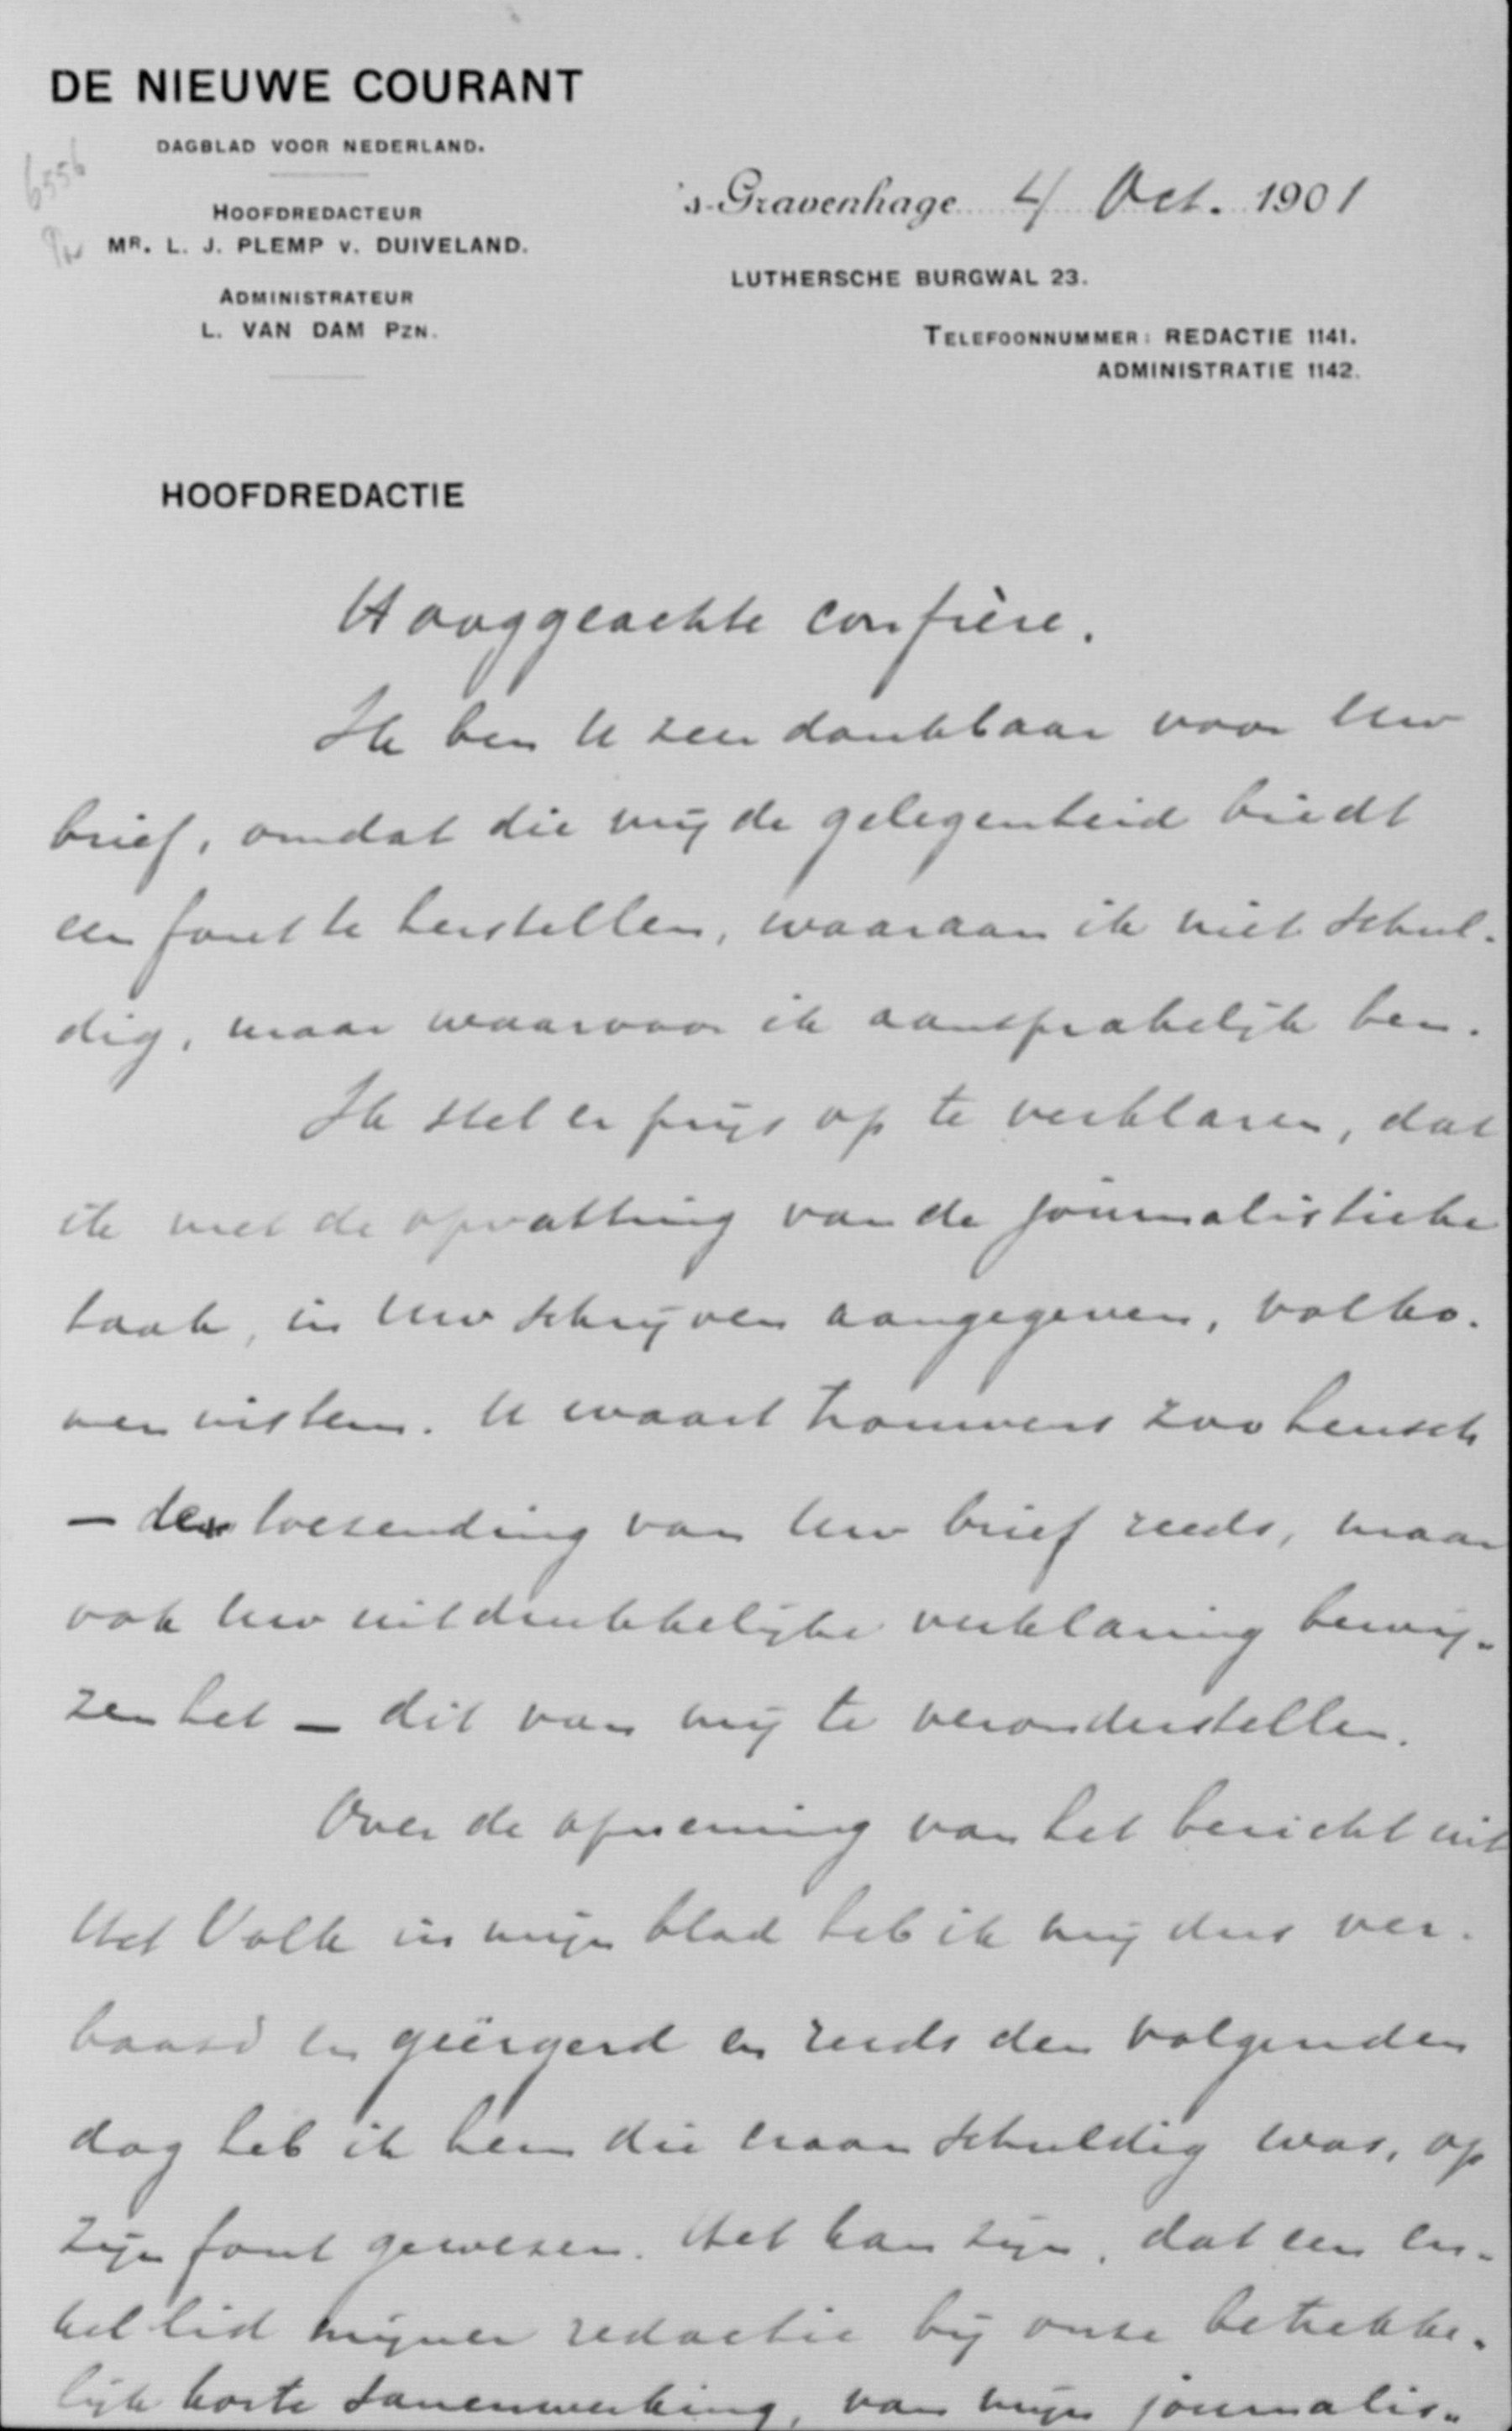 DE NIEUWE COURANT
DAGBLAD VOOR NEDERLAND.
6556
HOOFDREDACTEUR
MR. L. J. PLEMP v. DUIVELAND.
ADMINISTRATEUR
L. VAN DAM PZN.
's-Gravenhage 4 Oct. 1901
LUTHERSCHE BURGWAL 23.
TELEFOONNUMMER: REDACTIE 1141.
ADMINISTRATIE 1142.
HOOFDREDACTIE
Hooggeachte confrère.
Ik ben U zeer dankbaar voor Uw
brief, omdat die mij de gelegenheid biedt
een fout te herstellen, waaraan ik niet schul-
dig, maar waarvoor ik aansprakelijk ben.
Ik stel er prijs op te verklaren, dat
ik met de opvatting van de journalistieke
taak, in Uw schrijven aangegeven, volko-
men instem. U waart trouwens zoo heusch
— de toezending van Uw brief reeds, maar
ook Uw uitdrukkelijke verklaring bewij-
zen het — dit van mij te veronderstellen.
Over de opneming van het bericht uit
Het Volk in mijn blad heb ik mij dus ver-
baasd en geërgerd en reeds den volgenden
dag heb ik hem die eraan schuldig was, op
zijn fout gewezen. Het kan zijn, dat een en-
kel lid mijner redactie bij onze betrekke-
lijk korte samenwerking, van mijn journalis-